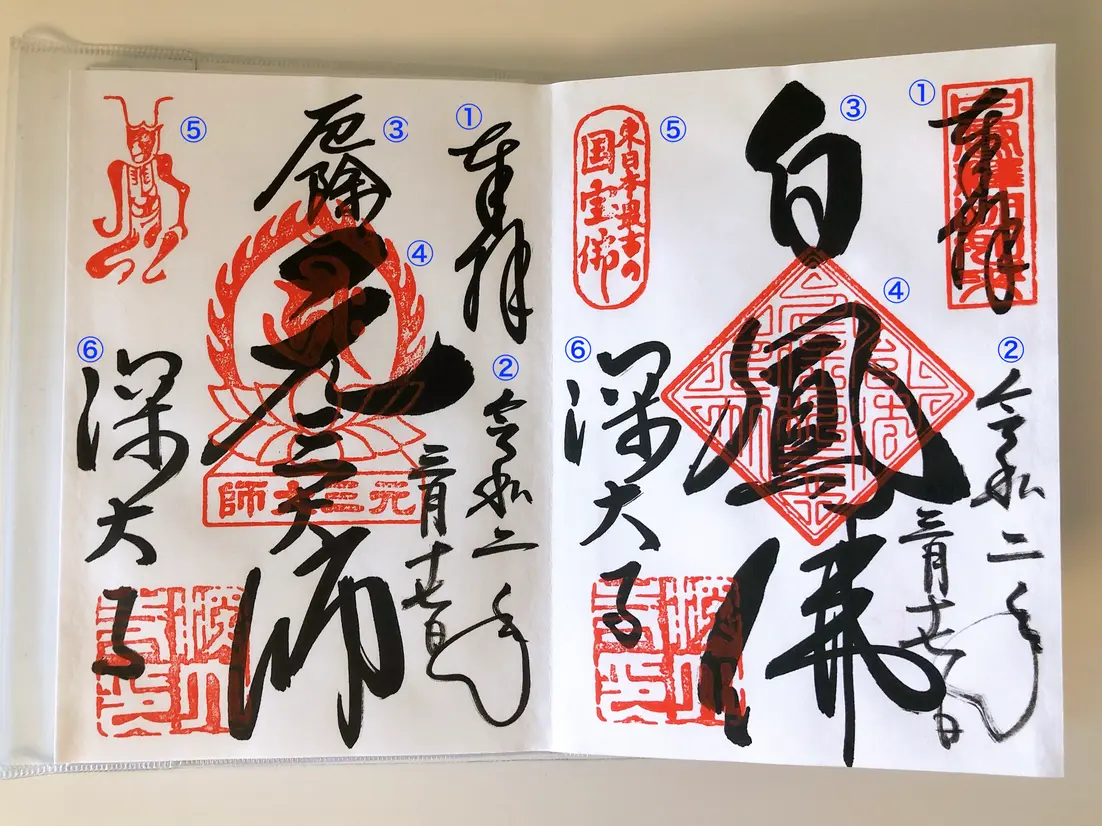 ①
奉拝
②
令和二年
三月十七日
③
白鳳佛
④
⑤
東日本最古の
国宝佛
⑥
深大寺
①
奉拝
②
令和二年
三月十七日
③
厄除
元三大師
④
元三大師
⑤
⑥
深大寺